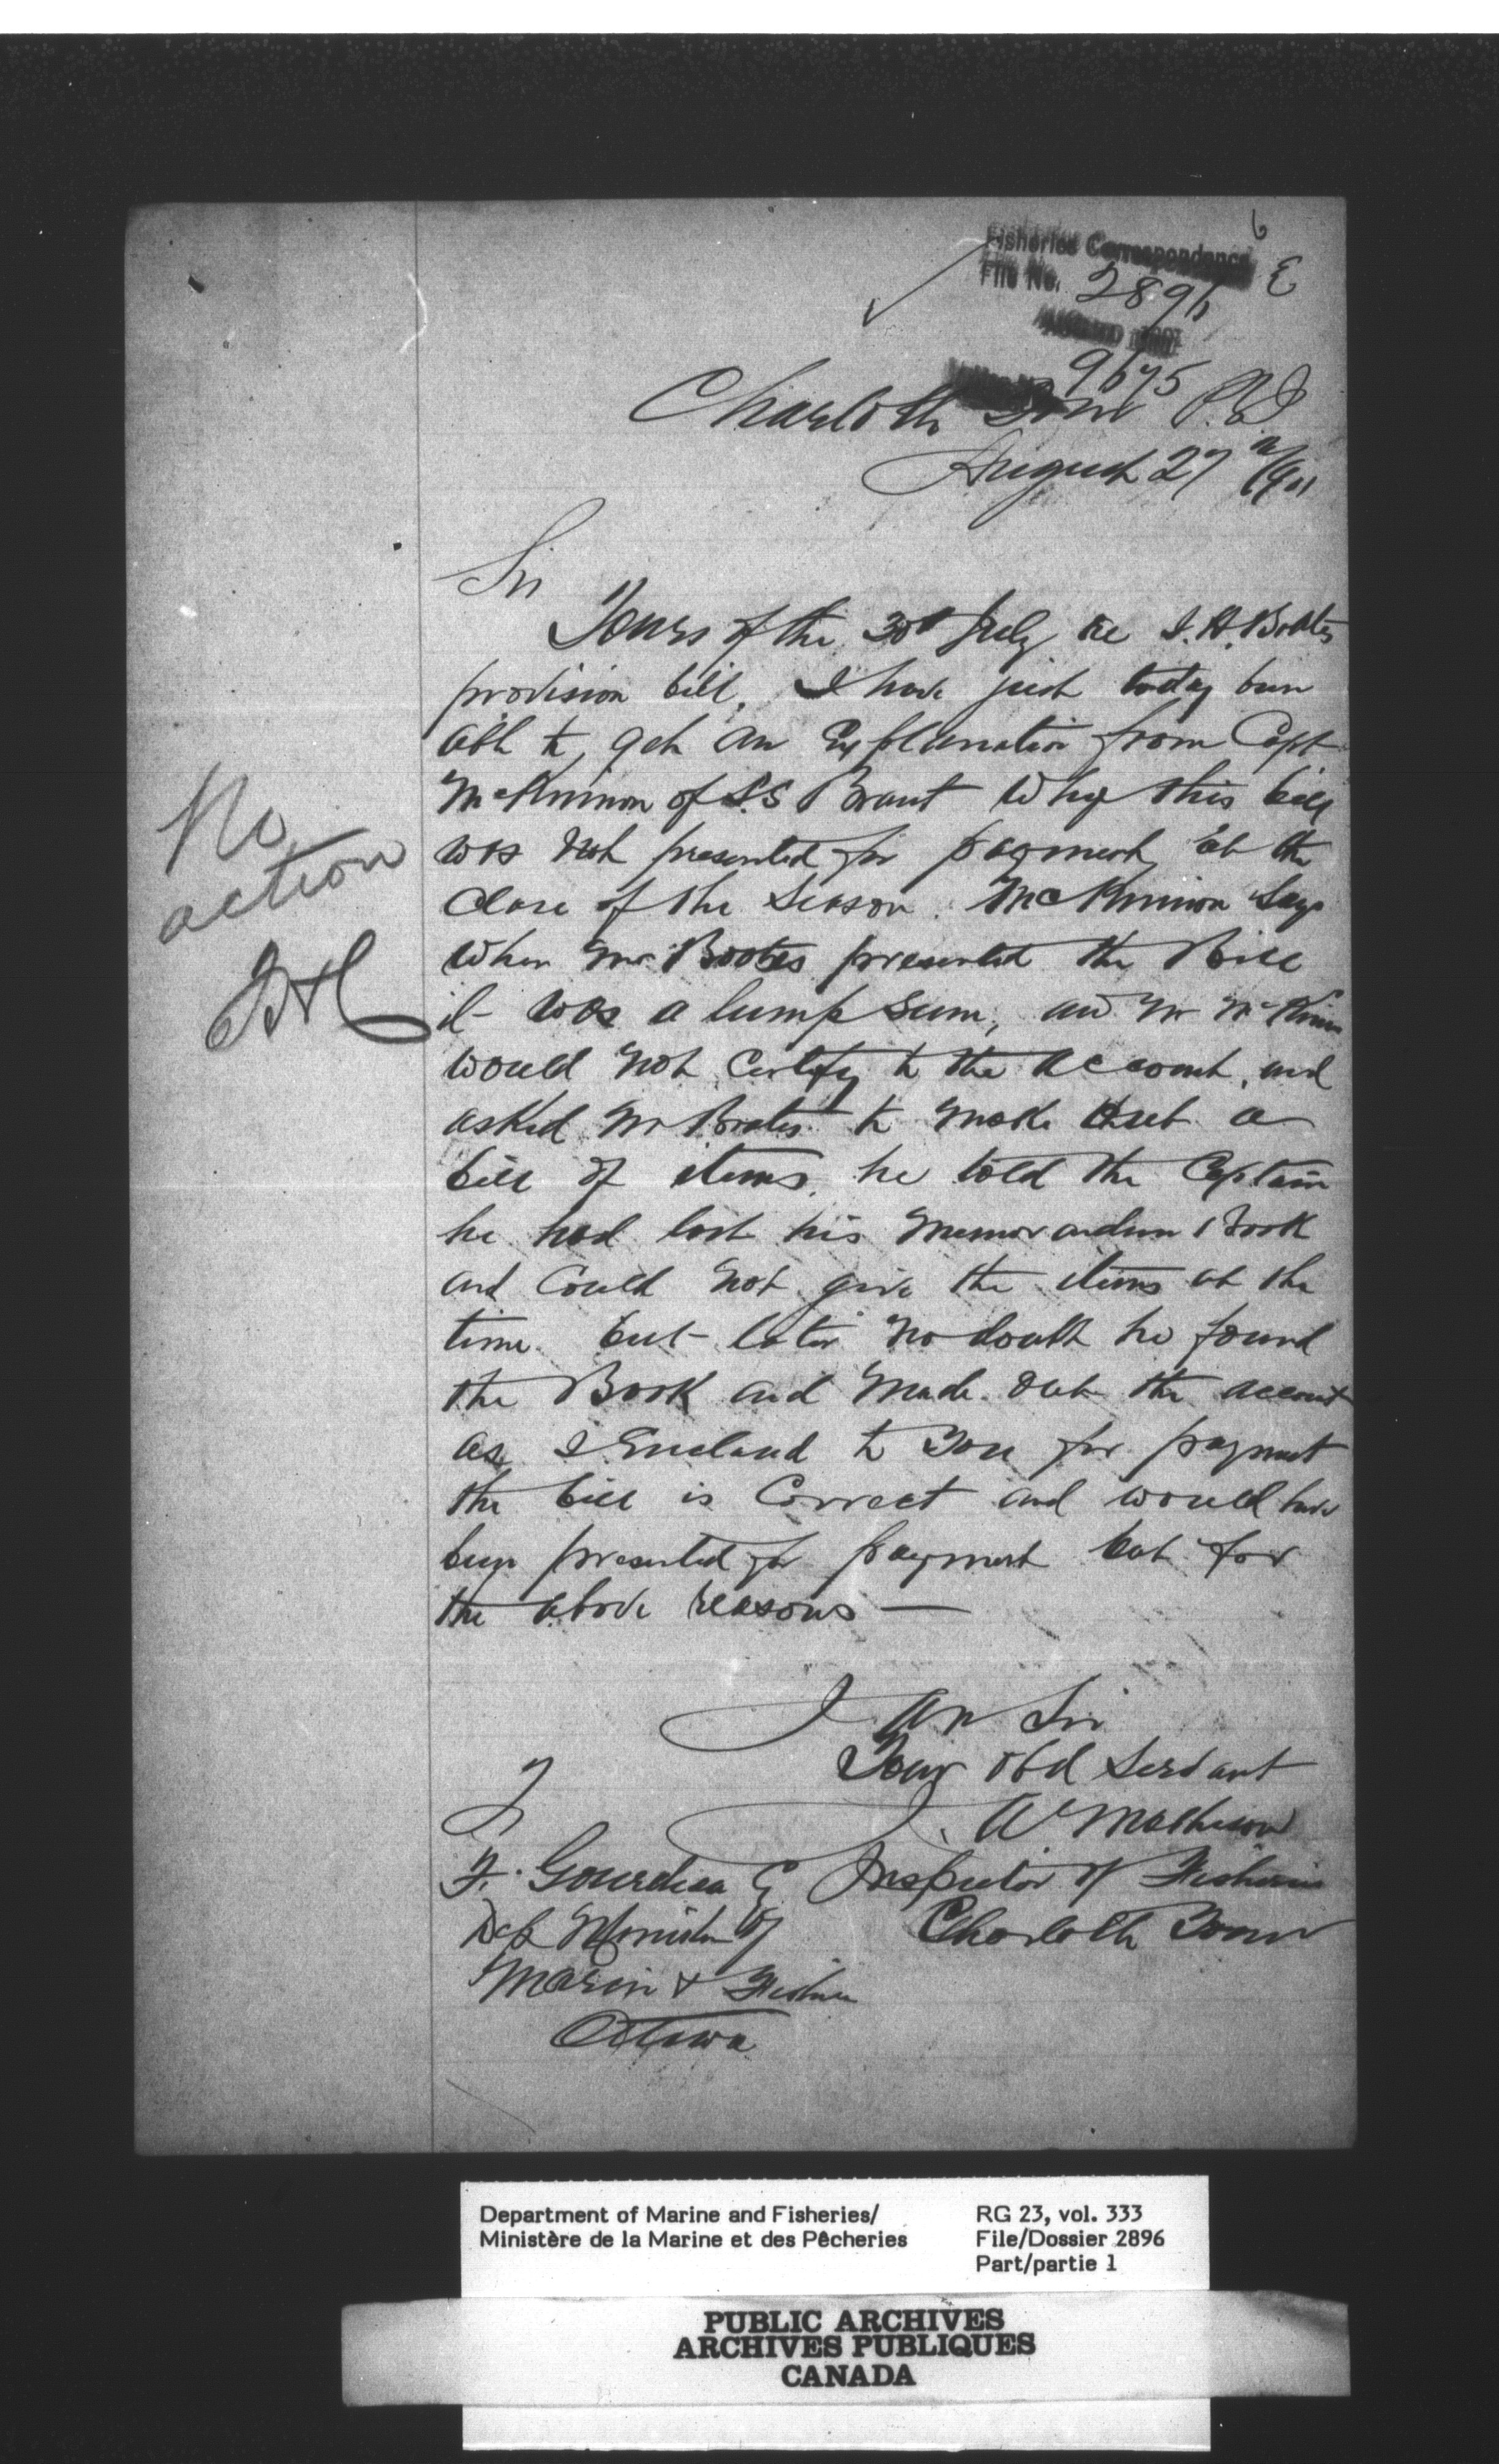 6
Fisheries Correspondence E
File No. 2896
9675
Charlotte Town P.E.I
August 27th 1901
Sir
Yours of the 30th July re J. H. Bootes
provision bill. I have just today been
able to get an Explanation from Capt
McKinnon of S.S Brant Why this bill
was not presented for payment at the
Close of the Season. McKinnon Says
When Mr. Bootes presented the Bill
it was a lump sum, and Mr McKinnon
would not Certify to the account, and
asked Mr Bootes to make out a
bill of items. he told the Captain
he had lost his Memorandum Book
and Could not give the items at the
time. but later no doubt he found
the Book and Made out the account
as I Enclosed to You for payment
the bill is Correct and would have
been presented for payment but for
the above reasons —
No
action
I Am Sir
Your obd Servant
J. A. Matheson
Inspector of Fisheries
Charlotte Town
To
F. Gourdeau Esq
Dep Minister of
Marine & Fisheries
Ottawa
Department of Marine and Fisheries/
Ministère de la Marine et des Pêcheries
RG 23, vol. 333
File/Dossier 2896
Part/partie 1
PUBLIC ARCHIVES
ARCHIVES PUBLIQUES
CANADA